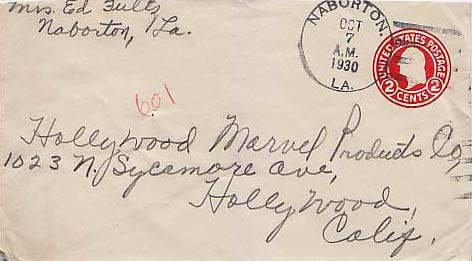 Mrs. Ed Fultz
Naborton, La.
NABORTON.
OCT
7
A.M.
1930
LA.
UNITED STATES POSTAGE
2 CENTS 2
601
Hollywood Marvel Products Co,
1023 N. Sycamore Ave,
Hollywood,
Calif.